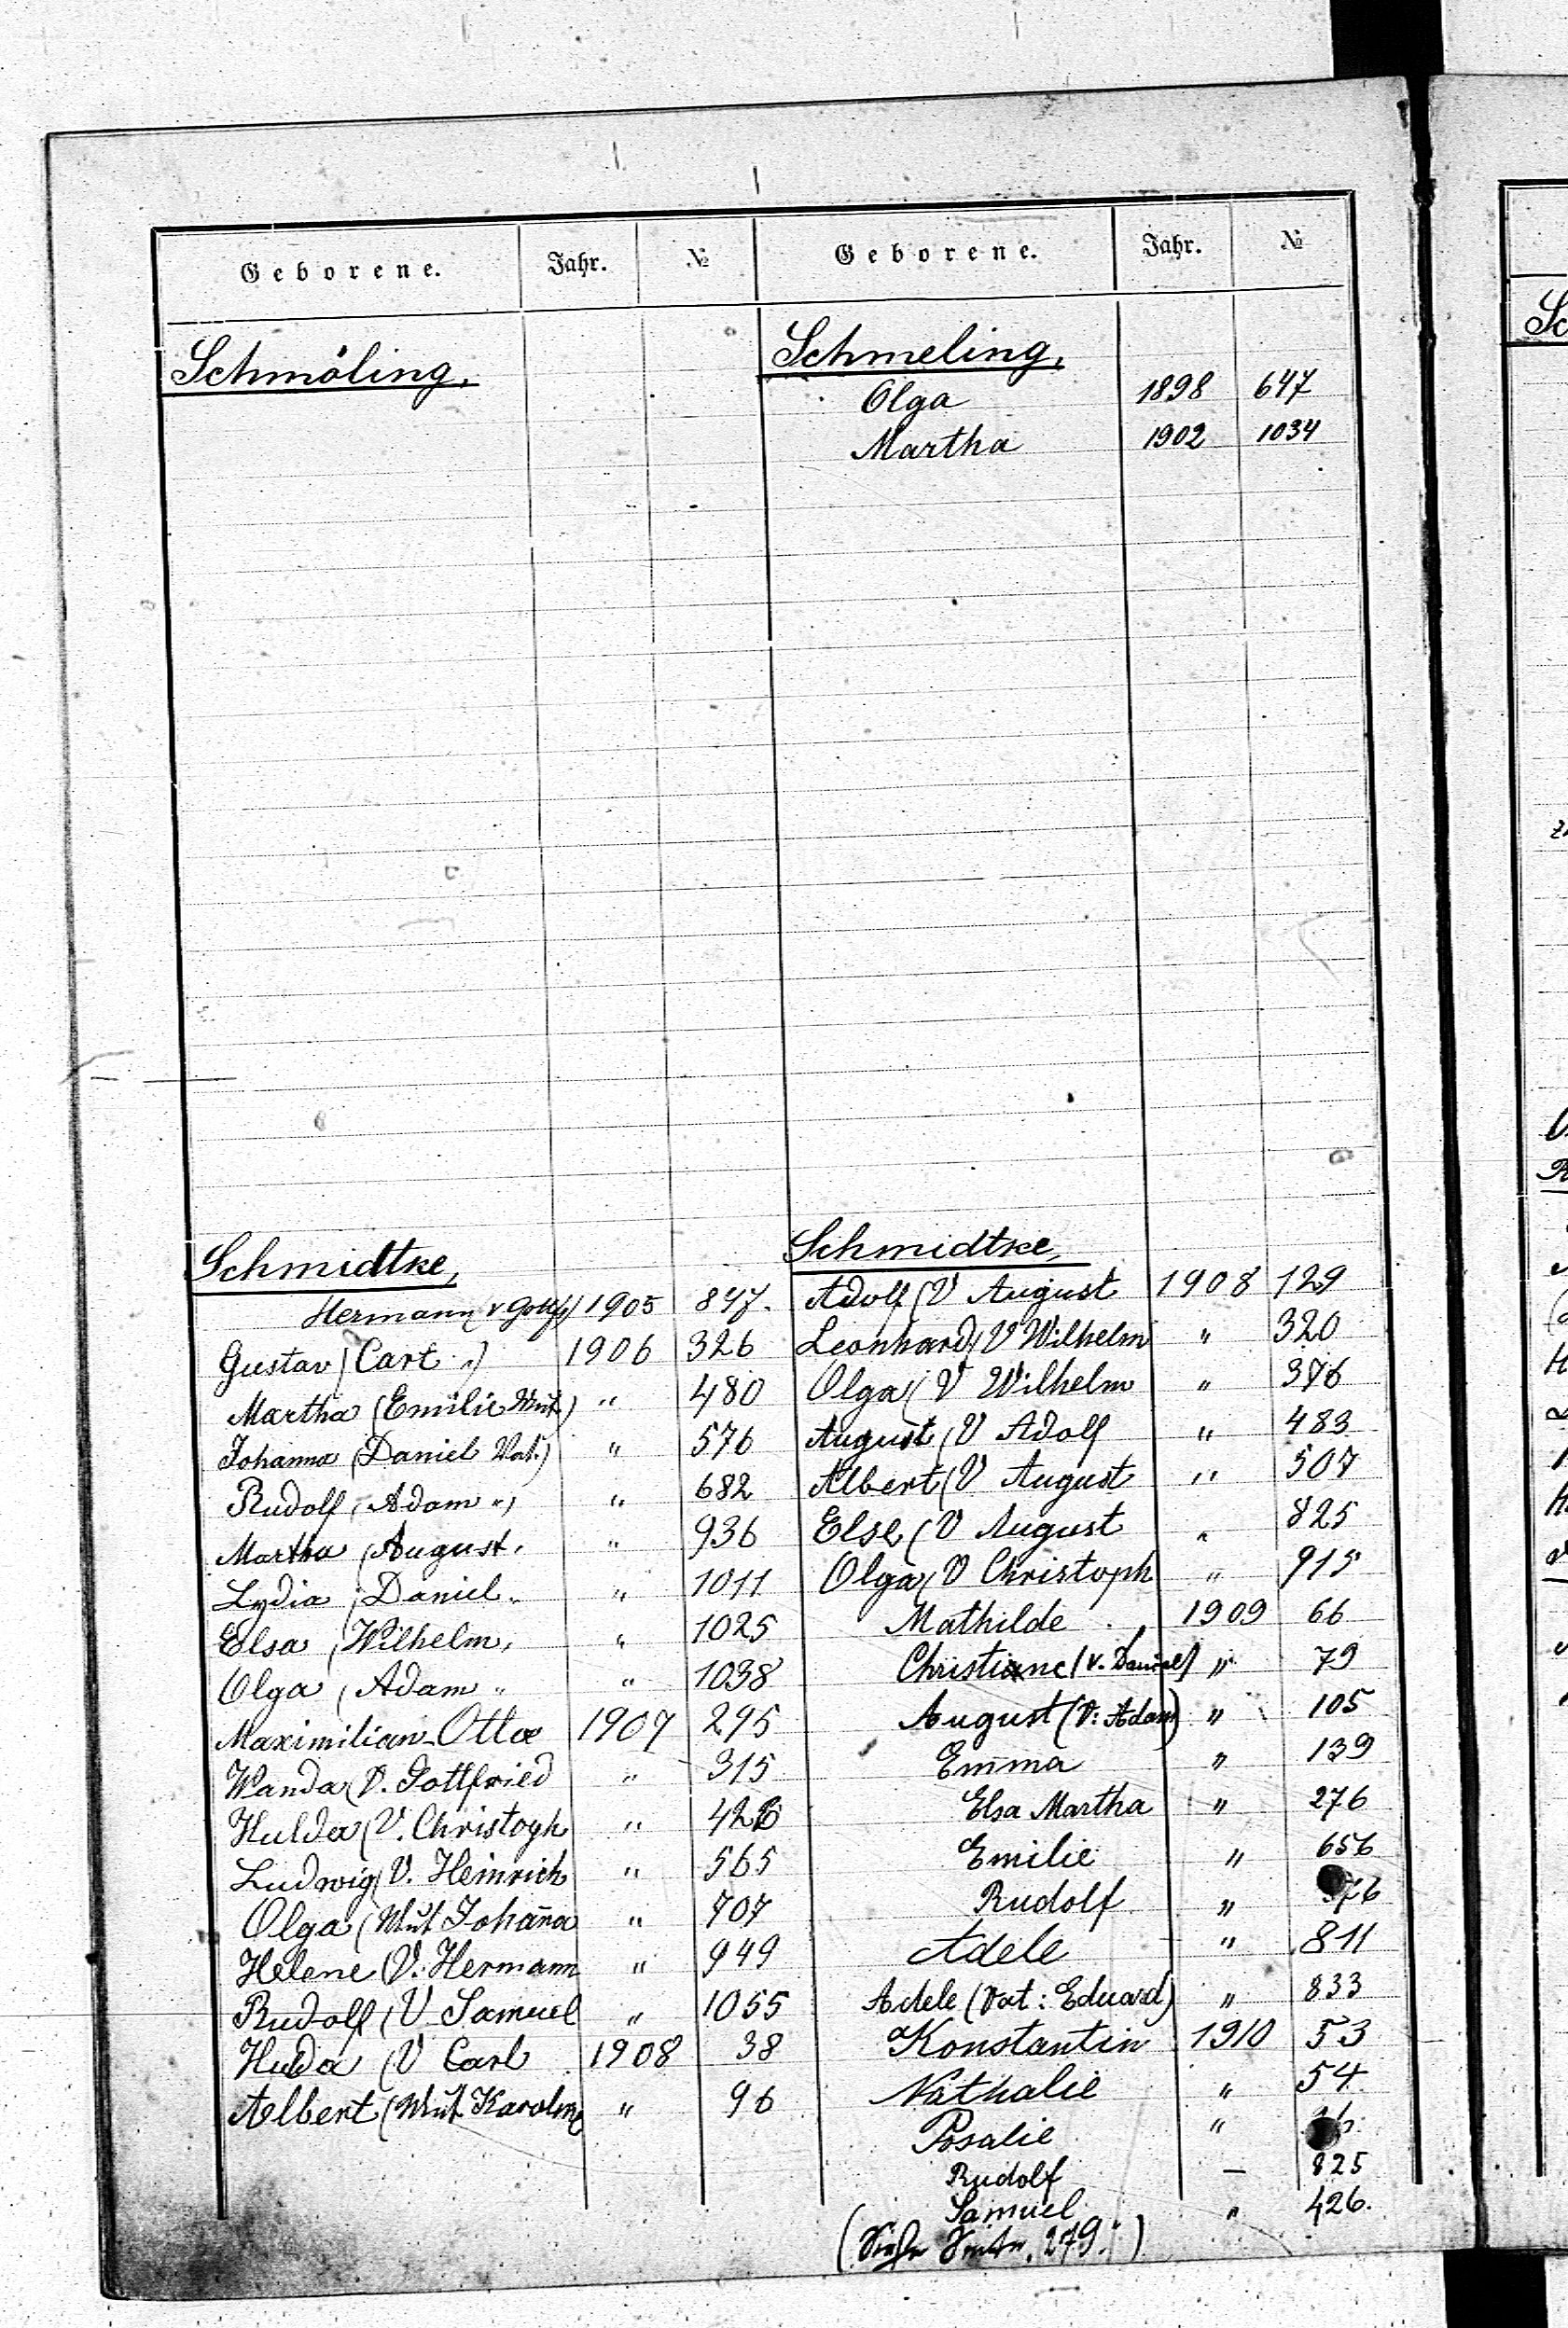 Geborene. Jahr. №
Schmöling,
Schmidtke,
Hermann (v Gottfr) 1905 847.
Gustav (Carl ") 1906 326
Martha (Emilie Mut.) " 480
Johanna (Daniel Vat.) " 576
Rudolf (Adam ") " 682
Martha (August " " 936
Lydia (Daniel " " 1011
Elsa (Wilhelm " " 1025
Olga (Adam " " 1038
Maximilian-Otto 1907 295
Wanda (V. Gottfried " 315
Hulda (V. Christoph "
Ludwig (V. Heinrich " 565
Olga (Mut Johanna " 707
Helene (V. Hermann " 949
Rudolf (V Samuel " 1055
Hulda (V Carl 1908 38
Albert (Mut. Karoline " 96
Geborene. Jahr. №
Schmeling,
Olga 1898 647
Martha 1902 1034
Schmidtke,
Adolf (V August 1908 129
Leonhard (V Wilhelm " 320
Olga (V Wilhelm " 376
August (V Adolf " 483
Albert (V August " 507
Else (V August " 825
Olga (V Christoph " 915
Mathilde 1909 66
Christiane (V. Daniel) " 79
August (V: Adam) " 105
Emma " 139
Elsa Martha " 276
Emilie " 656
Rudolf "
Adele " 811
Adele (Vat: Eduard) " 833
Konstantin 1910 53
Nathalie " 54
Rosalie "
Rudolf — 825
Samuel " 426.
(Siehe Seite. 279.)